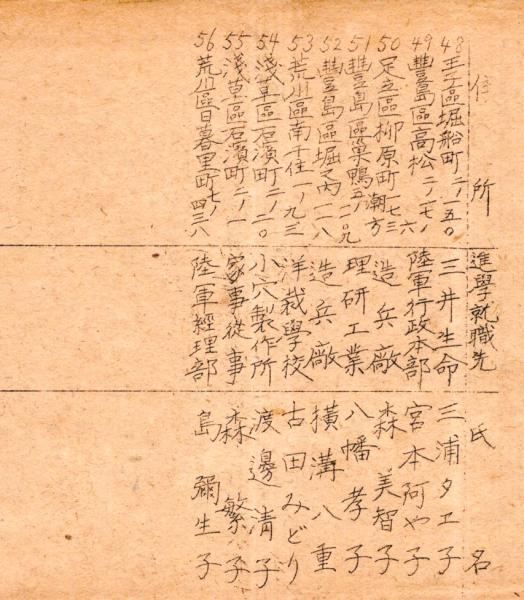 住所 進學就職先 氏名
48 王子區堀船町二ノ一五〇 三井生命 三浦タエ子
49 豐島區高松二ノ一七ノ六 陸軍行政本部 宮本阿や子
50 足立區柳原町一七三 潮方 造兵廠 森美智子
51 豐島區巢鴨五ノ一二〇九 理研工業 八幡孝子
52 豐島區堀之內一一八 造兵廠 横溝八重
53 荒川區南千住一ノ九三 洋裁學校 古田みどり
54 淺草區石濱町二ノ二〇 小穴製作所 渡邊清子
55 淺草區石濱町二ノ一 家事從事 森繁子
56 荒川區日暮里町七ノ四三八 陸軍經理部 島彌生子